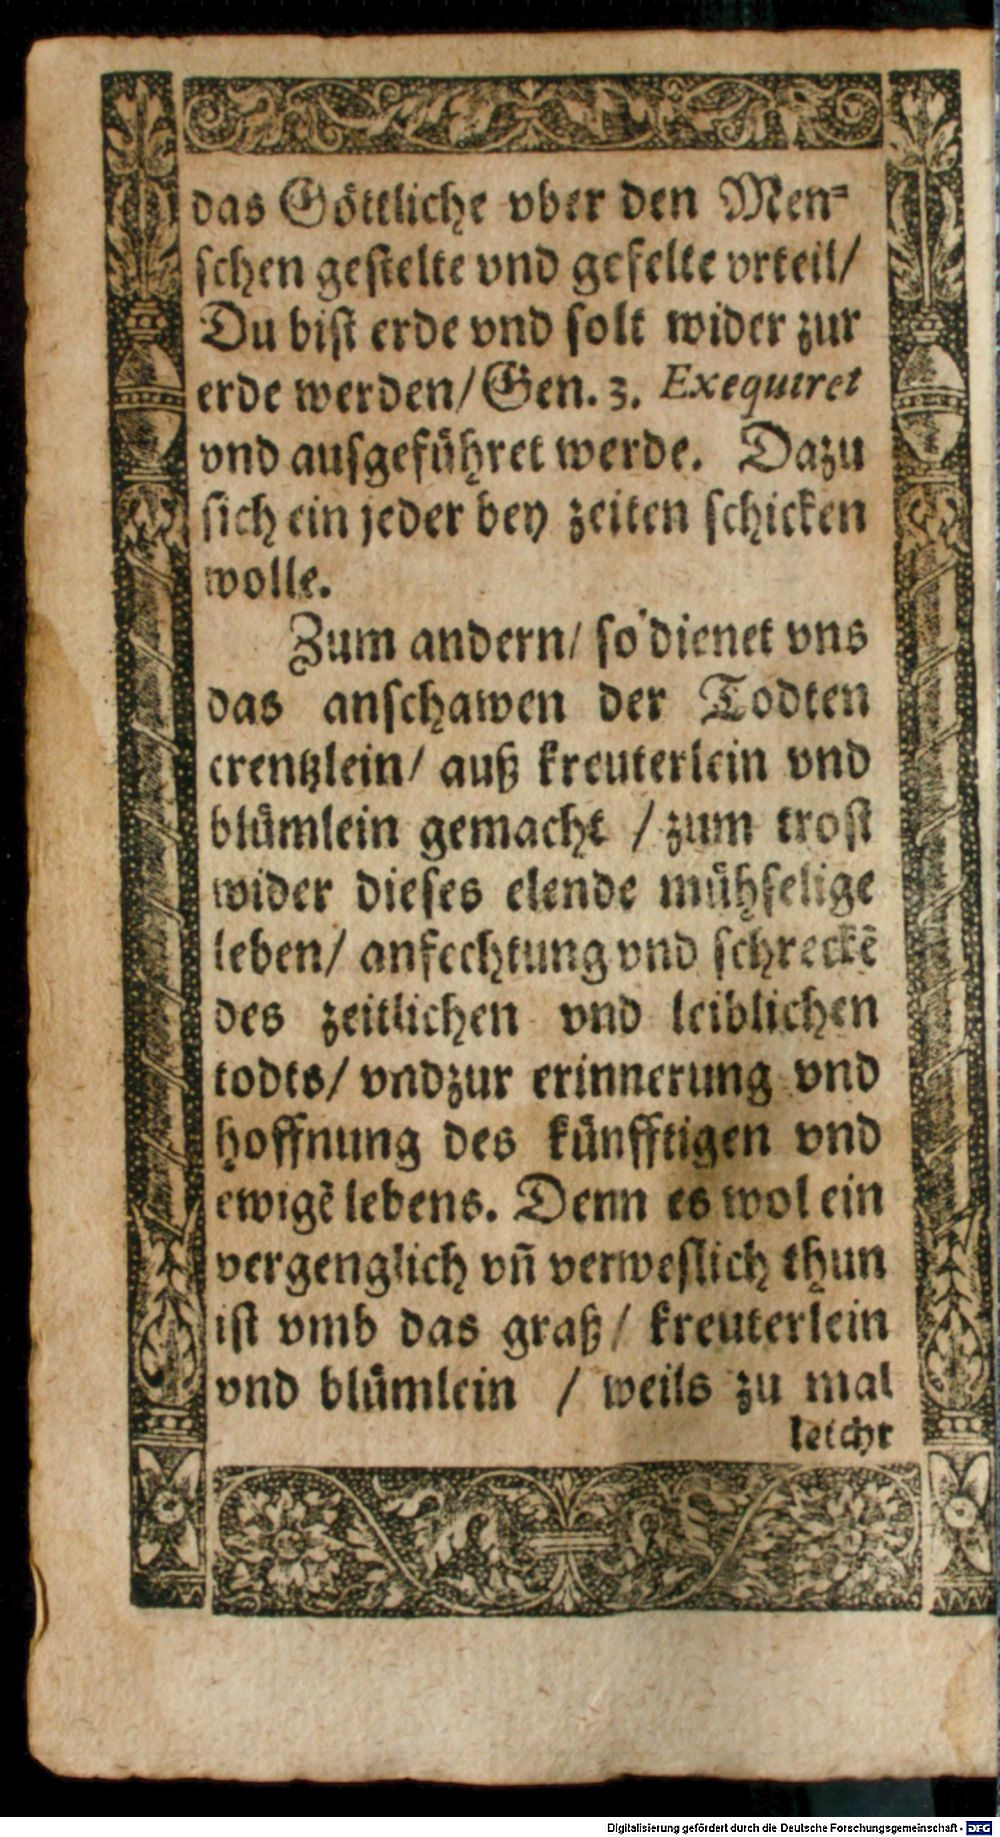 das Göttliche vber den Men-
schen gestelte vnd gefelte vrteil/
Du bist erde vnd solt wider zur
erde werden/ Gen. 3. Exequiret
vnd ausgeführet werde. Dazu
sich ein jeder bey zeiten schicken
wolle.
Zum andern/ so dienet vns
das anschawen der Todten
crentzlein/ auß kreuterlein vnd
blümlein gemacht / zum trost
wider dieses elende mühselige
leben/ anfechtung vnd schreckẽ
des zeitlichen vnd leiblichen
todts/ vnd zur erinnerung vnd
hoffnung des künfftigen vnd
ewigẽ lebens. Denn es wol ein
vergenglich vñ verweslich thun
ist vmb das graß/ kreuterlein
vnd blümlein / weils zu mal
leicht
Digitalisierung gefördert durch die Deutsche Forschungsgemeinschaft - DFG